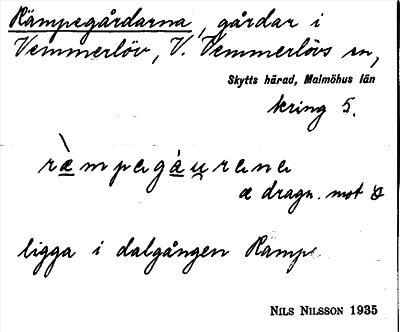 Rämpegårdarna, gårdar i
Vemmerlöv, V. Vemmerlövs sn,
Skytts härad, Malmöhus län
kring 5.
ræ̀mpegá̱u̱rene
æ dragn. mot a
ligga i dalgången Rämpe
NILS NILSSON 1935